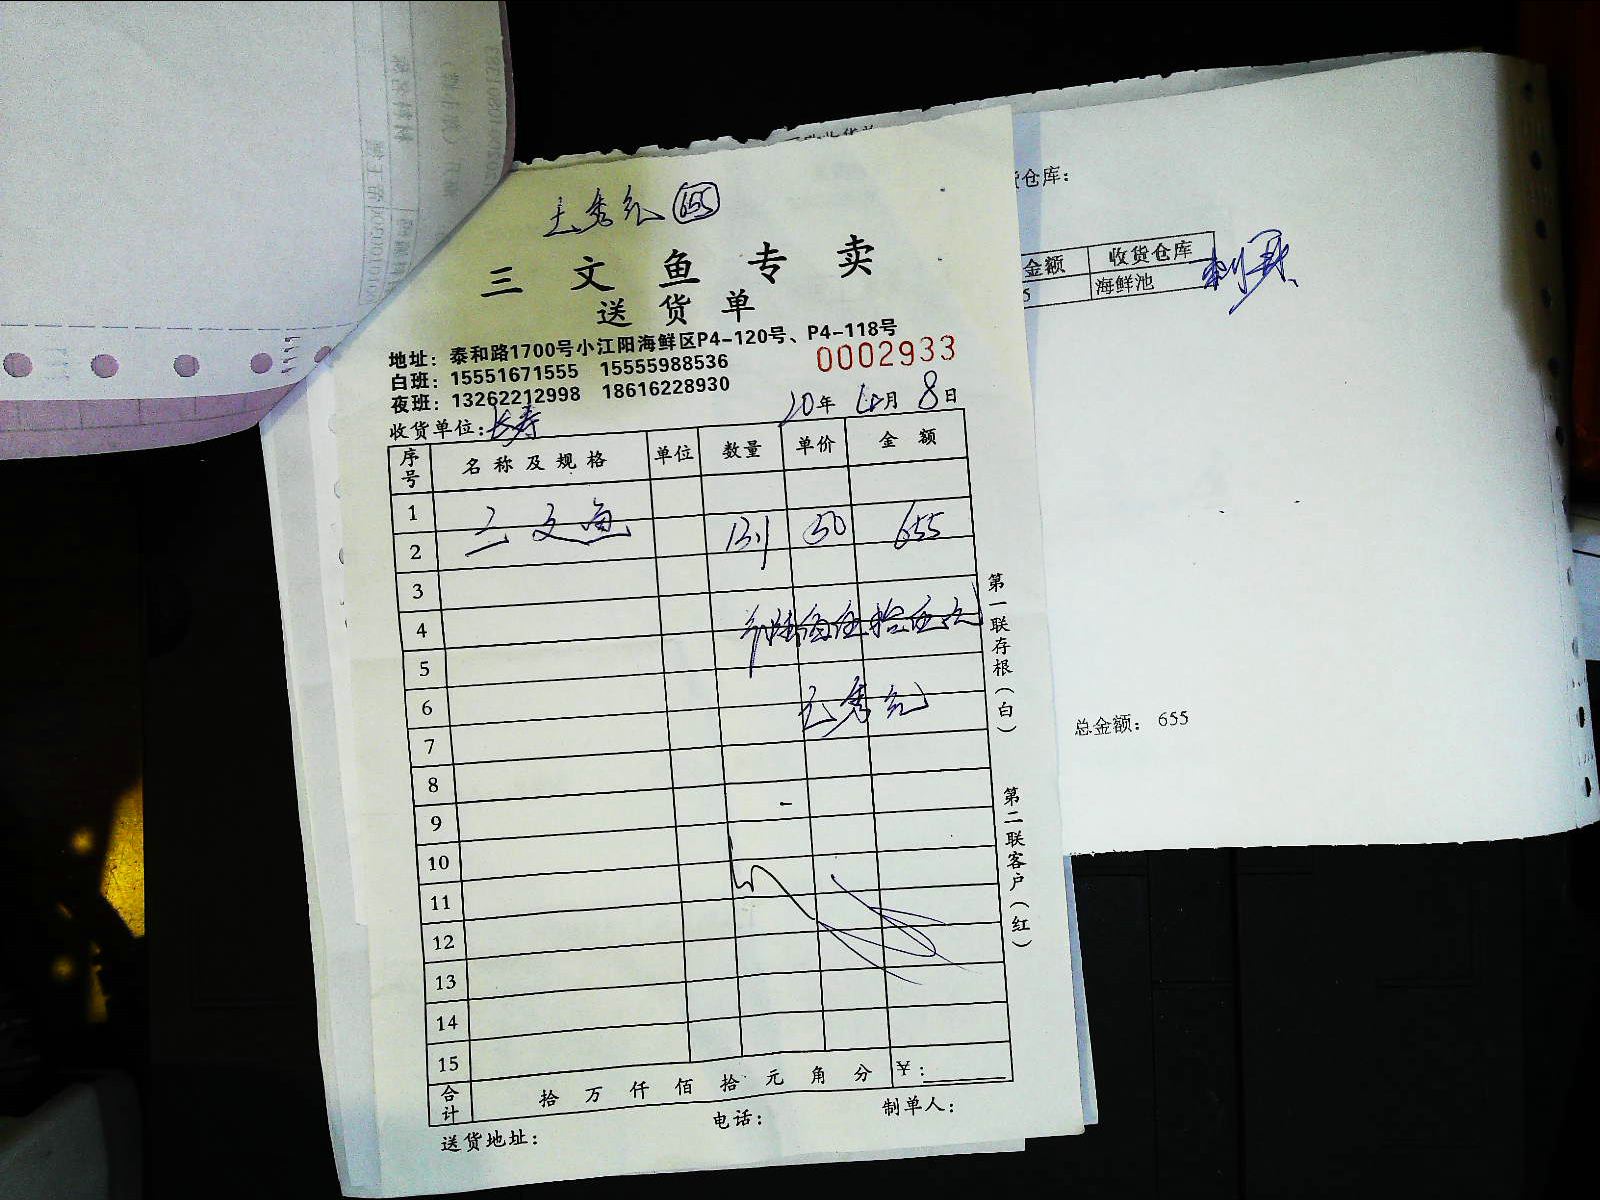 王秀纪 655
三文鱼专卖
送货单
地址：泰和路1700号小江阳海鲜区P4-120号、P4-118号
白班：15551671555 15555988536
0002933
夜班：13262212998 18616228930
20年 12月 8日
收货单位：长寿
序号 名称及规格 单位 数量 单价 金额
1
三文鱼 13.1 50 655
2
3
4
陆佰伍拾伍元
5
6
王秀纪
7
8
9
10
11
12
13
14
15
合计 拾 万 仟 佰 拾 元 角 分 ￥：
送货地址： 电话： 制单人：
第一联存根（白）
第二联客户（红）
货仓库：
金额 收货仓库
5 海鲜池
总金额： 655